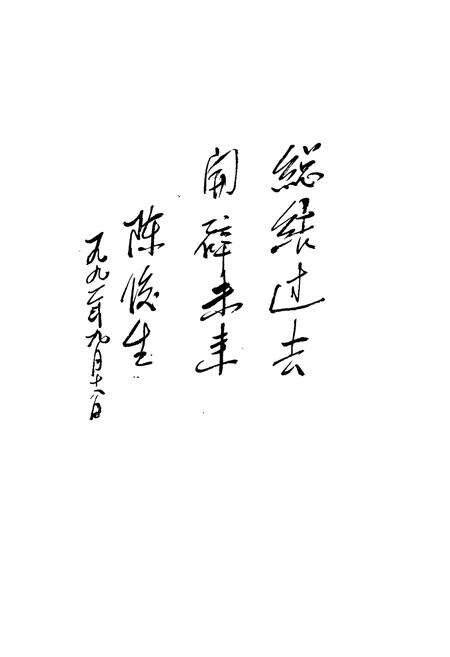 総结过去
開辟未来
陈俊生
一九九一年九月十八日